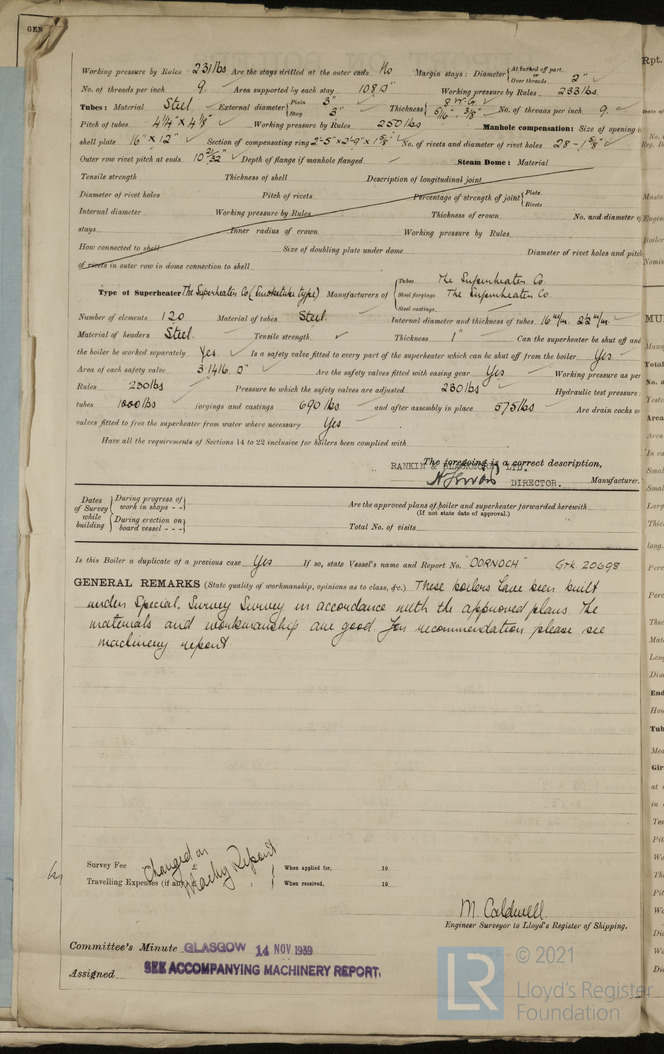 GEN
Working pressure by Rules 231 lbs Are the stays drilled at the outer ends No Margin stays: Diameter { At turned off part, or Over threads 2"
No. of threads per inch 9. Area supported by each stay 108 □" Working pressure by Rules 233 lbs.
Tubes: Material Steel External diameter { Plain 3" Stay 3" Thickness { 8 W.G. 5/16", 3/8" No. of threads per inch 9.
Pitch of tubes 4 1/4" x 4 1/8" Working pressure by Rules 250 lbs Manhole compensation: Size of opening in
shell plate 16" x 12" Section of compensating ring 2'-5" x 2'-9" x 1 5/8" No. of rivets and diameter of rivet holes 28 - 1 5/8"
Outer row rivet pitch at ends 10 21/32" Depth of flange if manhole flanged Steam Dome: Material
Tensile strength Thickness of shell Description of longitudinal joint
Diameter of rivet holes Pitch of rivets Percentage of strength of joint { Plate Rivets
Internal diameter Working pressure by Rules Thickness of crown No. and diameter of
stays Inner radius of crown Working pressure by Rules
How connected to shell Size of doubling plate under dome Diameter of rivet holes and pitch
of rivets in outer row in dome connection to shell
Type of Superheater The Superheater Co (Smoketube type) Manufacturers of { Tubes The Superheater Co. Steel forgings The Superheater Co Steel castings
Number of elements 120 Material of tubes Steel Internal diameter and thickness of tubes 16 m/m. 2½ m/m.
Material of headers Steel. Tensile strength Thickness 1" Can the superheater be shut off and
the boiler be worked separately Yes. Is a safety valve fitted to every part of the superheater which can be shut off from the boiler Yes
Area of each safety valve 3.1416 □" Are the safety valves fitted with easing gear Yes Working pressure as per
Rules 230 lbs Pressure to which the safety valves are adjusted 230 lbs Hydraulic test pressure:
tubes 1000 lbs forgings and castings 690 lbs and after assembly in place 575 lbs Are drain cocks or
valves fitted to free the superheater from water where necessary Yes
Have all the requirements of Sections 14 to 22 inclusive for boilers been complied with
The foregoing is a correct description,
RANKIN & BLACKMORE LTD.
DIRECTOR. Manufacturer.
Dates of Survey while building { During progress of work in shops - - { During erection on board vessel - - -
Are the approved plans of boiler and superheater forwarded herewith
(If not state date of approval.)
Total No. of visits
Is this Boiler a duplicate of a previous case Yes If so, state Vessel's name and Report No. "DORNOCH" Grk. 20698
GENERAL REMARKS (State quality of workmanship, opinions as to class, &c.) These boilers have been built
under Special. Survey Survey in accordance with the approved plans. The
materials and workmanship are good. For recommendation please see
machinery report
Survey Fee Charged on
Travelling Expenses (if any) Machy Report
When applied for, 19
When received, 19
M. Caldwell
Engineer Surveyor to Lloyd's Register of Shipping.
Committee's Minute GLASGOW 14 NOV 1939
Assigned SEE ACCOMPANYING MACHINERY REPORT.
LR © 2021
Lloyd's Register
Foundation
Rpt.